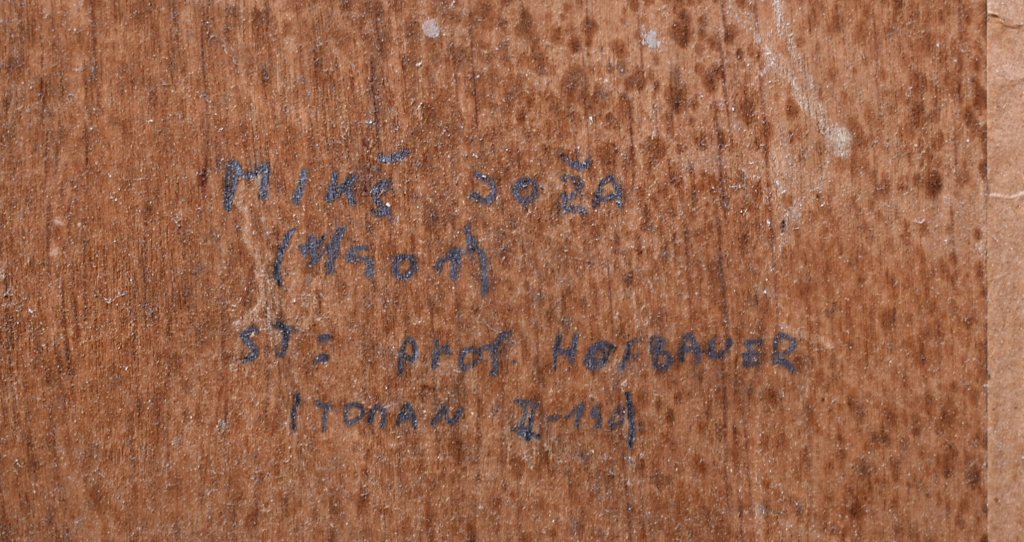 MIKŠ JOŽA
(*1901)
ST: prof. HOFBAUER
(TOMAN II-